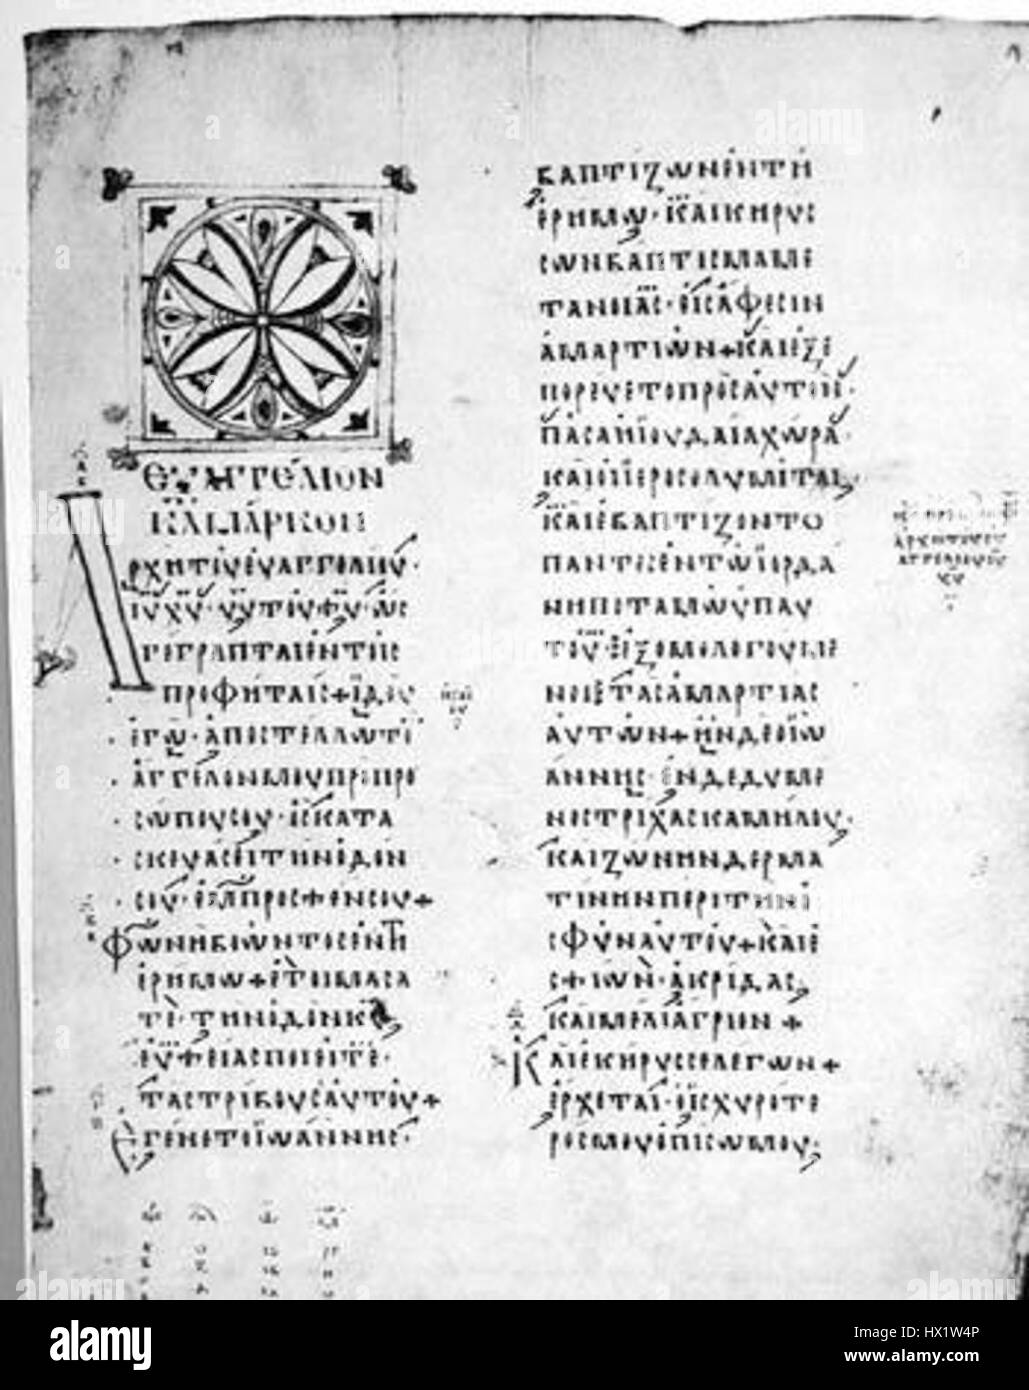 ΕΥΑΓΓΕΛΙΟΝ
ΚΑΤΑ ΜΑΡΚΟΝ
ΑΡΧΗ ΤΟΥ ΕΥΑΓΓΕΛΙΟΥ·
ΙΥ ΧΥ· ΥΥ ΤΟΥ ΘΥ· ΩΣ
ΓΕΓΡΑΠΤΑΙ ΕΝ ΤΟΙΣ
ΠΡΟΦΗΤΑΙΣ + ΙΔΟΥ
ΕΓΩ ΑΠΟΣΤΕΛΛΩ ΤΟΝ
ΑΓΓΕΛΟΝ ΜΟΥ ΠΡΟ ΠΡΟ
ΣΩΠΟΥ ΣΟΥ· ΟΣ ΚΑΤΑ
ΣΚΕΥΑΣΕΙ ΤΗΝ ΟΔΟΝ
ΣΟΥ· ΕΜΠΡΟΣΘΕΝ ΣΟΥ +
ΦΩΝΗ ΒΟΩΝΤΟΣ ΕΝ ΤΗ
ΕΡΗΜΩ + ΕΤΟΙΜΑΣΑ
ΤΕ· ΤΗΝ ΟΔΟΝ ΚΥ
ΕΥΘΕΙΑΣ ΠΟΙΕΙΤΕ·
ΤΑΣ ΤΡΙΒΟΥΣ ΑΥΤΟΥ +
ΕΓΕΝΕΤΟ ΙΩΑΝΝΗΣ·
ΒΑΠΤΙΖΩΝ ΕΝ ΤΗ
ΕΡΗΜΩ· ΚΑΙ ΚΗΡΥΣ
ΣΩΝ ΒΑΠΤΙΣΜΑ ΜΕ
ΤΑΝΟΙΑΣ· ΕΙΣ ΑΦΕΣΙΝ
ΑΜΑΡΤΙΩΝ + ΚΑΙ ΕΞΕ
ΠΟΡΕΥΕΤΟ ΠΡΟΣ ΑΥΤΟΝ·
ΠΑΣΑ Η ΙΟΥΔΑΙΑ ΧΩΡΑ·
ΚΑΙ ΟΙ ΙΕΡΟΣΟΛΥΜΙΤΑΙ
ΚΑΙ ΕΒΑΠΤΙΖΟΝΤΟ
ΠΑΝΤΕΣ ΕΝ ΤΩ ΙΟΡΔΑ
ΝΗ ΠΟΤΑΜΩ ΥΠ ΑΥ
ΤΟΥ· ΕΞΟΜΟΛΟΓΟΥΜΕ
ΝΟΙ ΤΑΣ ΑΜΑΡΤΙΑΣ
ΑΥΤΩΝ + ΗΝ ΔΕ Ο ΙΩ
ΑΝΝΗΣ· ΕΝΔΕΔΥΜΕ
ΝΟΣ ΤΡΙΧΑΣ ΚΑΜΗΛΟΥ·
ΚΑΙ ΖΩΝΗΝ ΔΕΡΜΑ
ΤΙΝΗΝ ΠΕΡΙ ΤΗΝ Ο
ΣΦΥΝ ΑΥΤΟΥ + ΚΑΙ Ε
ΣΘΙΩΝ· ΑΚΡΙΔΑΣ
ΚΑΙ ΜΕΛΙ ΑΓΡΙΟΝ +
ΚΑΙ ΕΚΗΡΥΣΣΕ ΛΕΓΩΝ +
ΕΡΧΕΤΑΙ· Ο ΙΣΧΥΡΟΤΕ
ΡΟΣ ΜΟΥ ΟΠΙΣΩ ΜΟΥ·
ΑΡΧΗ ΤΟΥ ΕΥ
ΑΓΓΕΛΙΟΥ
alamy
Image ID: HX1W4P
www.alamy.com